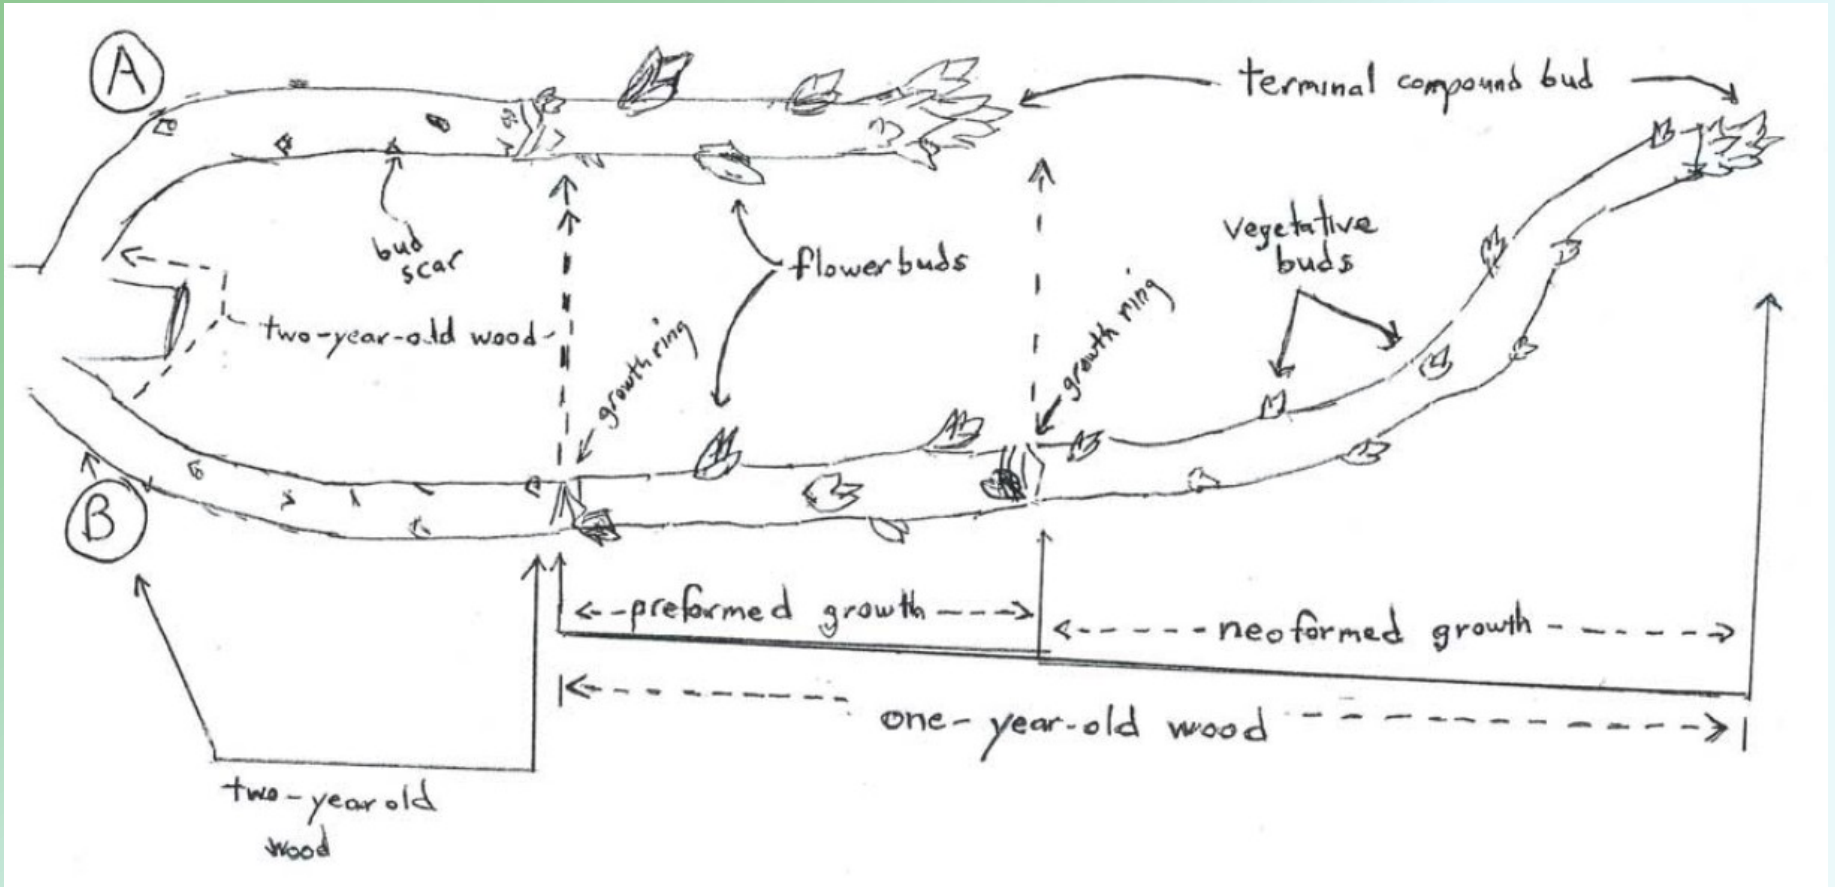 A
terminal compound bud
bud
scar
flower buds
vegetative
buds
two-year-old wood
growth ring
growth ring
B
preformed growth
neoformed growth
one-year-old wood
two-year old
wood